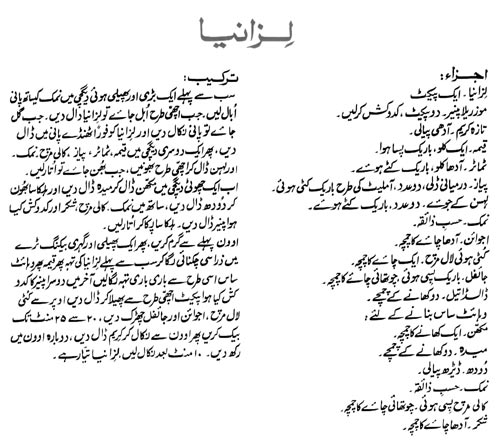 لزانیا
اجزاء:
لزانیا۔ ایک پیکٹ
موزریلا پنیر۔ دو پیکٹ، کدوکش کرلیں۔
تازہ کریم۔ آدھی پیالی۔
قیمہ۔ ایک کلو، باریک پسا ہوا۔
ٹماٹر۔ آدھا کلو، باریک کٹے ہوئے۔
پیاز۔ درمیانی ڈلی، دو عدد، آملیٹ کی طرح باریک کٹی ہوئی۔
لہسن کے جوئے۔ دو عدد، باریک کٹے ہوئے۔
نمک۔ حسب ذائقہ۔
اجوائن۔ آدھا چائے کا چمچہ۔
کٹی ہوئی لال مرچ۔ ایک چائے کا چمچہ۔
جائفل۔ باریک پسی ہوئی، چوتھائی چائے کا چمچہ۔
ڈالڈا تیل۔ دو کھانے کے چمچے۔
وہائٹ ساس بنانے کے لئے:
مکھن۔ ایک کھانے کا چمچہ۔
میدہ۔ دو کھانے کے چمچے۔
دودھ۔ ڈیڑھ پیالی۔
نمک۔ حسب ذائقہ۔
کالی مرچ پسی ہوئی۔ چوتھائی چائے کا چمچہ۔
شکر۔ آدھا چائے کا چمچہ۔
ترکیب:
سب سے پہلے ایک بڑی اور پھیلی ہوئی دیگچی میں نمک کیساتھ پانی
اُبال لیں۔ جب اچھی طرح اُبل جائے تو لزانیا ڈال دیں۔ جب گل
جائے تو پانی نکال دیں اور لزانیا کو فوراً ٹھنڈے پانی میں ڈال
دیں، پھر ایک دوسری دیگچی میں قیمہ، ٹماٹر، پیاز، کالی مرچ، نمک،
اور لہسن ڈال کر اچھی طرح بھونیں، جب بھن جائے تو اُتار لیں۔
اب ایک چھوٹی دیگچی میں مکھن ڈال کر میدہ ڈال دیں اور ہلکا سا بھون
کر دودھ ڈال دیں، ساتھ میں نمک، کالی مرچ، شکر اور کدوکش کیا
ہوا پنیر ڈال دیں۔ ہلکا سا پکا کر اُتار لیں۔
اوون پہلے سے گرم کریں، پھر ایک پھیلی اور گہری بیکنگ ٹرے
میں ذرا سی چکنائی لگا کر سب سے پہلے لزانیا کی تہہ پھر قیمہ پھر وہائٹ
ساس اسی طرح سے باری باری تہہ لگالیں آخر میں دوسرا پنیر کا کدو
کش کیا ہوا پیکٹ اچھی طرح سے پھیلا کر ڈال دیں اوپر سے کٹی
لال مرچ، اجوائن اور جائفل چھڑک دیں، ۲۰۰ سے ۲۵ منٹ تک
بیک کریں پھر اوون سے نکال کر کریم ڈال دیں، دوبارہ اوون میں
رکھ دیں۔ ۱۰ منٹ بعد نکال لیں، لزانیا تیار ہے۔